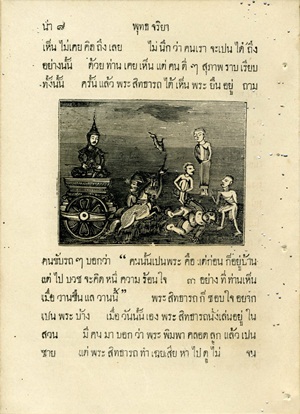 น่า ๗ พุทธ จริยา
เห็น ไม่เคย คิด ถึง เลย ไม่ นึก ว่า คน เรา จะ เปน ได้ ถึง
อย่าง นั้น ด้วย ท่าน เคย เห็น แต่ คน ดี ๆ สุภาพ ราบ เรียบ
ทั้ง นั้น ครั้น แล้ว พระ สิทธารถ ได้ เห็น พระ ยืน อยู่ ถาม
คน ขับ รถ ๆ บอก ว่า “ คน นั้น เปน พระ คือ แต่ ก่อน ก็ อยู่ บ้าน
แต่ ไป บวช จะ คิด หนี ความ ร้อน ใจ ๓ อย่าง ที่ ท่าน เห็น
เมื่อ วาน ซืน แล วาน นี้ ” พระ สิทธารถ ก็ ชอบ ใจ อยาก
เปน พระ บ้าง เมื่อ วัน นี้ เอง พระ สิทธารถ นั่ง เล่น อยู่ ใน
สวน มี คน มา บอก ว่า พระ พิมพา คลอด ลูก แล้ว เปน
ชาย แต่ พระ สิทธารถ ทำ เฉย เสีย หา ไป ดู ไม่ จน